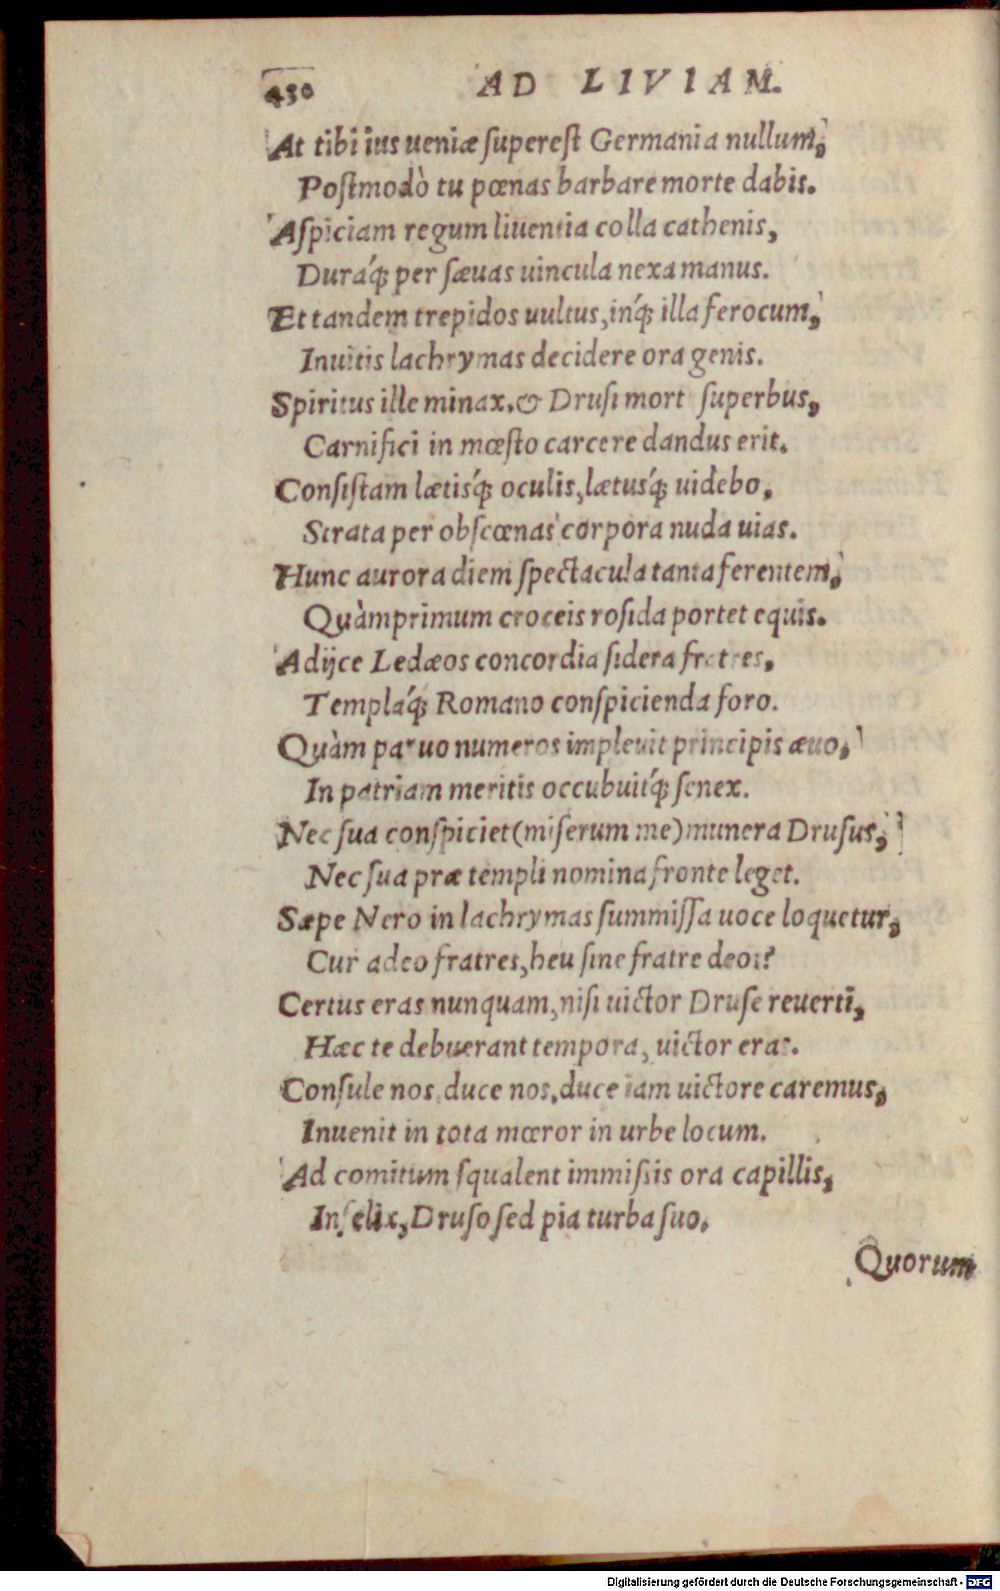 430 AD LIVIAM.
At tibi ius ueniæ superest Germania nullum,
Postmodò tu pœnas barbare morte dabis.
Aspiciam regum liuentia colla cathenis,
Duraq́; per sæuas uincula nexa manus.
Et tandem trepidos uultus, inq́; illa ferocum,
Inuitis lachrymas decidere ora genis.
Spiritus ille minax, & Drusi mort superbus,
Carnifici in mœsto carcere dandus erit.
Consistam lætisq́; oculis, lætusq́; uidebo,
Strata per obscœnas corpora nuda uias.
Hunc aurora diem spectacula tanta ferentem,
Quàmprimum croceis rosida portet equis.
Adijce Ledæos concordia sidera fratres,
Templaq́; Romano conspicienda foro.
Quàm paruo numeros impleuit principis æuo,
In patriam meritis occubuitq́; senex.
Nec sua conspiciet (miserum me) munera Drusus,
Nec sua præ templi nomina fronte leget.
Sæpe Nero in lachrymas summissa uoce loquetur,
Cur adeo fratres, heu sine fratre deos?
Certus eras nunquam, nisi uictor Druse reuerti,
Hæc te debuerant tempora, uictor eras.
Consule nos, duce nos, duce iam uictore caremus,
Inuenit in tota mœror in urbe locum.
Ad comitum squalent immissis ora capillis,
Infelix, Druso sed pia turba suo.
Quorum
Digitalisierung gefördert durch die Deutsche Forschungsgemeinschaft - DFG